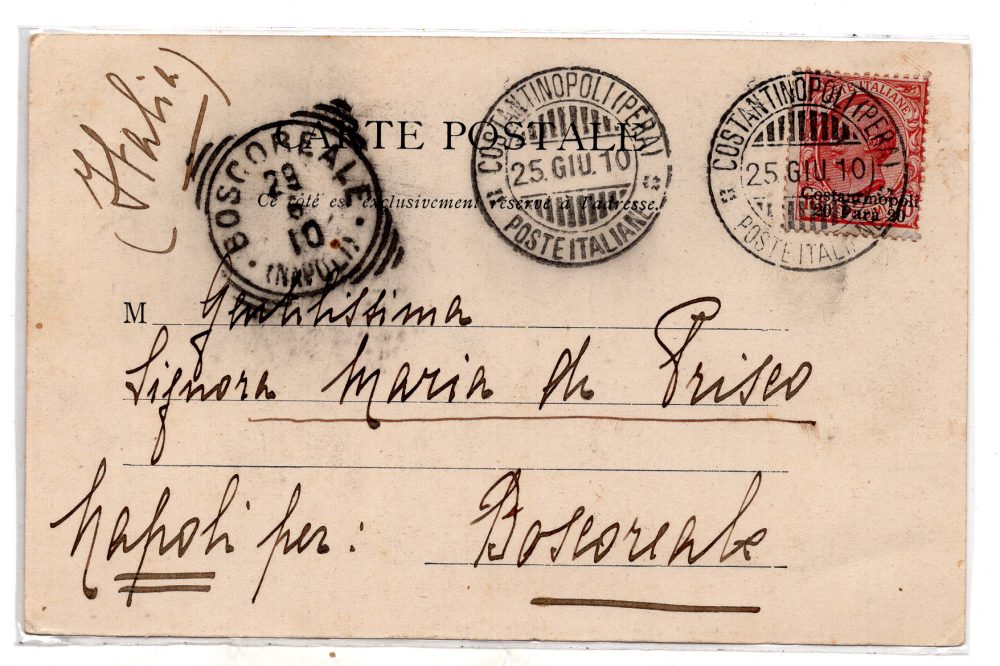 (Italia)
CARTE POSTALE
Ce côté est exclusivement réservé à l'adresse.
BOSCOREALE
10
(NAPOLI)
COSTANTINOPOLI (PERA)
25. GIU. 10
POSTE ITALIANE
COSTANTINOPOLI (PERA)
25. GIU. 10
POSTE ITALIANE
POSTE ITALIANE
Costantinopoli
20 Parà 20
M Gentilissima
Signora Maria di Prisco
Napoli per: Boscoreale